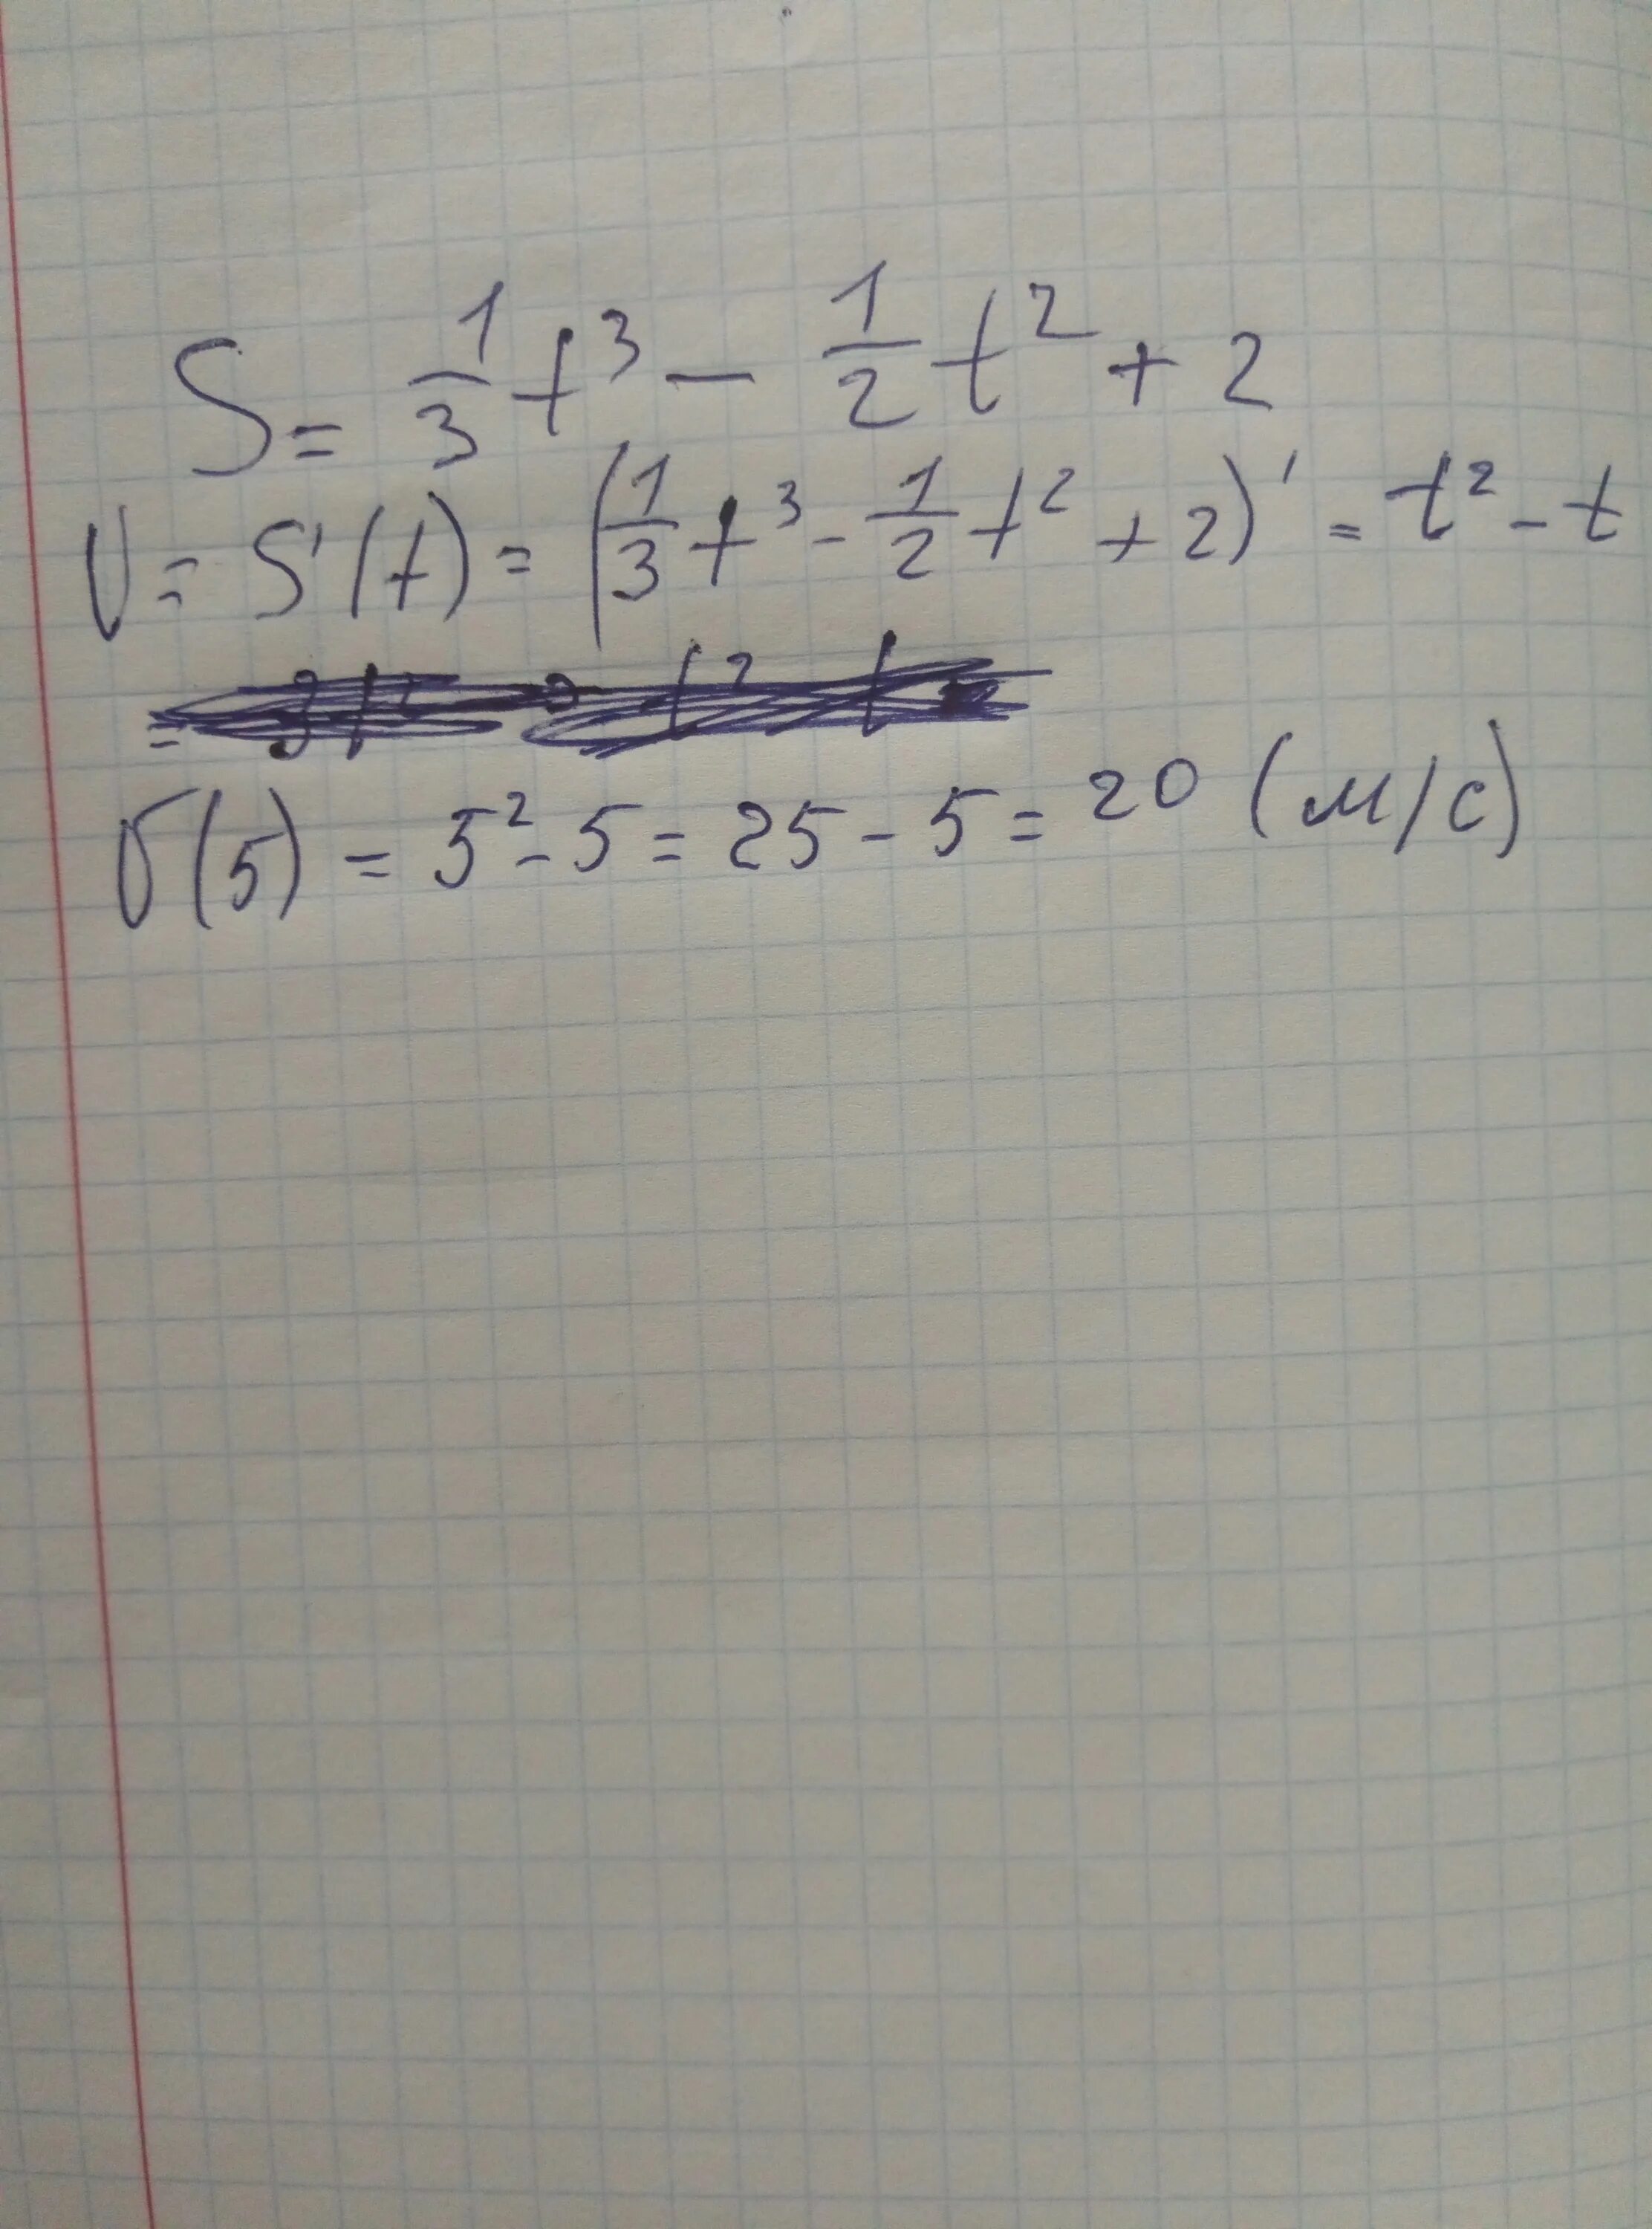 S = 1/3 t³ - 1/2 t² + 2
V = S'(t) = (1/3 t³ - 1/2 t² + 2)' = t² - t
V(5) = 5² - 5 = 25 - 5 = 20 (м/с)